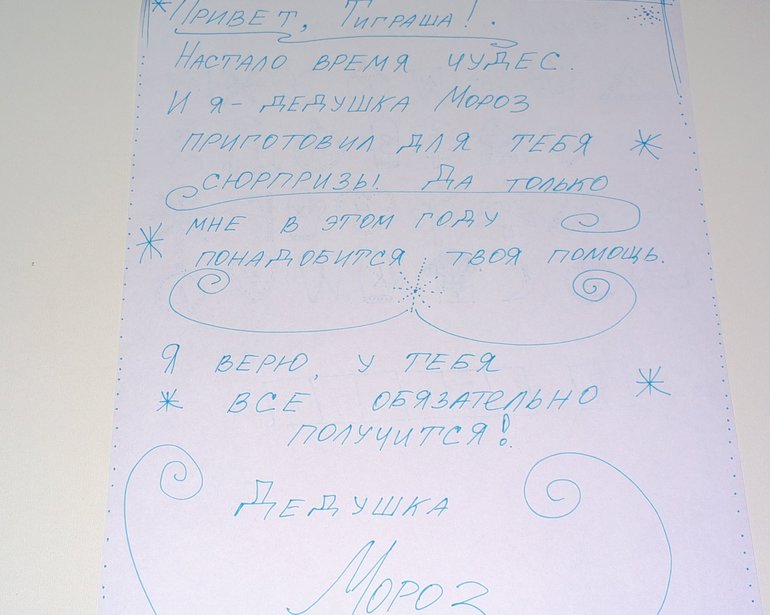 Привет, Тиграша!.
Настало время чудес.
И я - дедушка Мороз
приготовил для тебя
сюрпризы! Да только
мне в этом году
понадобится твоя помощь.
Я верю, у тебя
все обязательно
получится!
Дедушка
Мороз